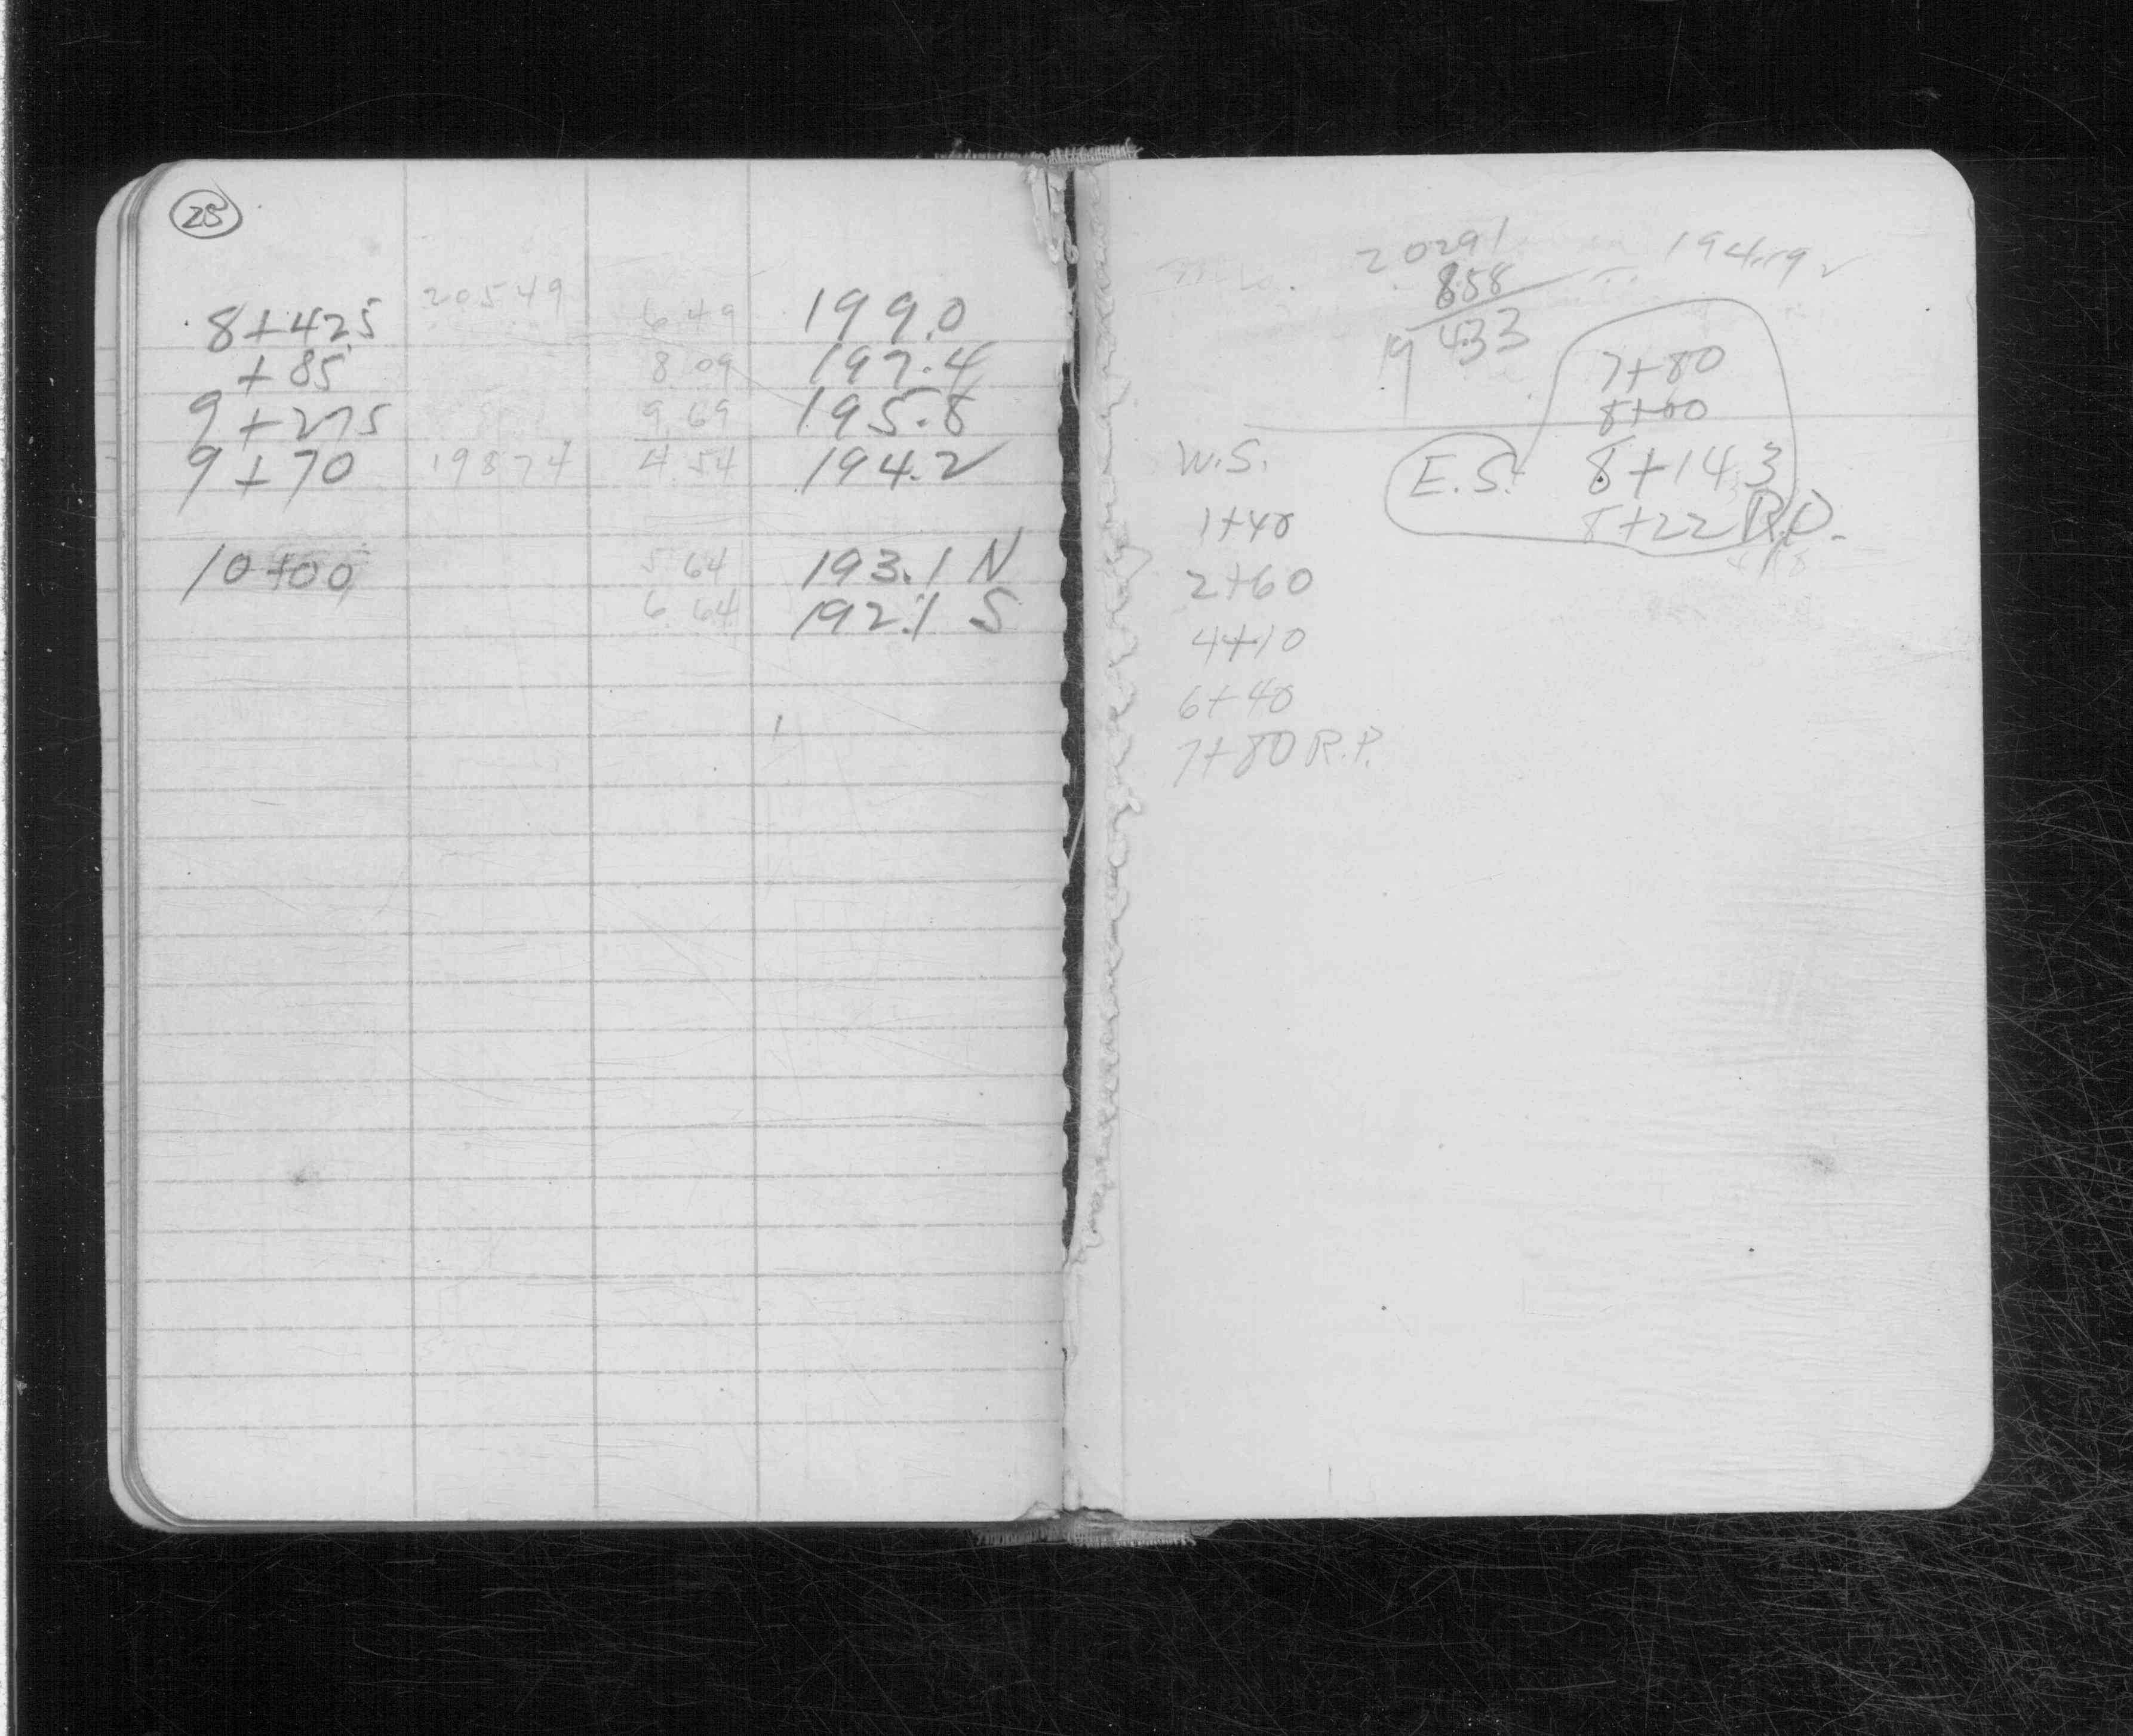 25
8+42.5 205 49 6.49 199.0
+85 8.09 197.4
9+27.5 9.69 195.8
9+70 198 74 4.54 194.2
10+00 5.64 193.1 N
6.64 192.1 S
20291 194.19
858
19433
7+80
8+00
W.S. E.S. 8+14.3
1+40 8+22 R.P.
2+60
4+10
6+40
7+80 R.P.